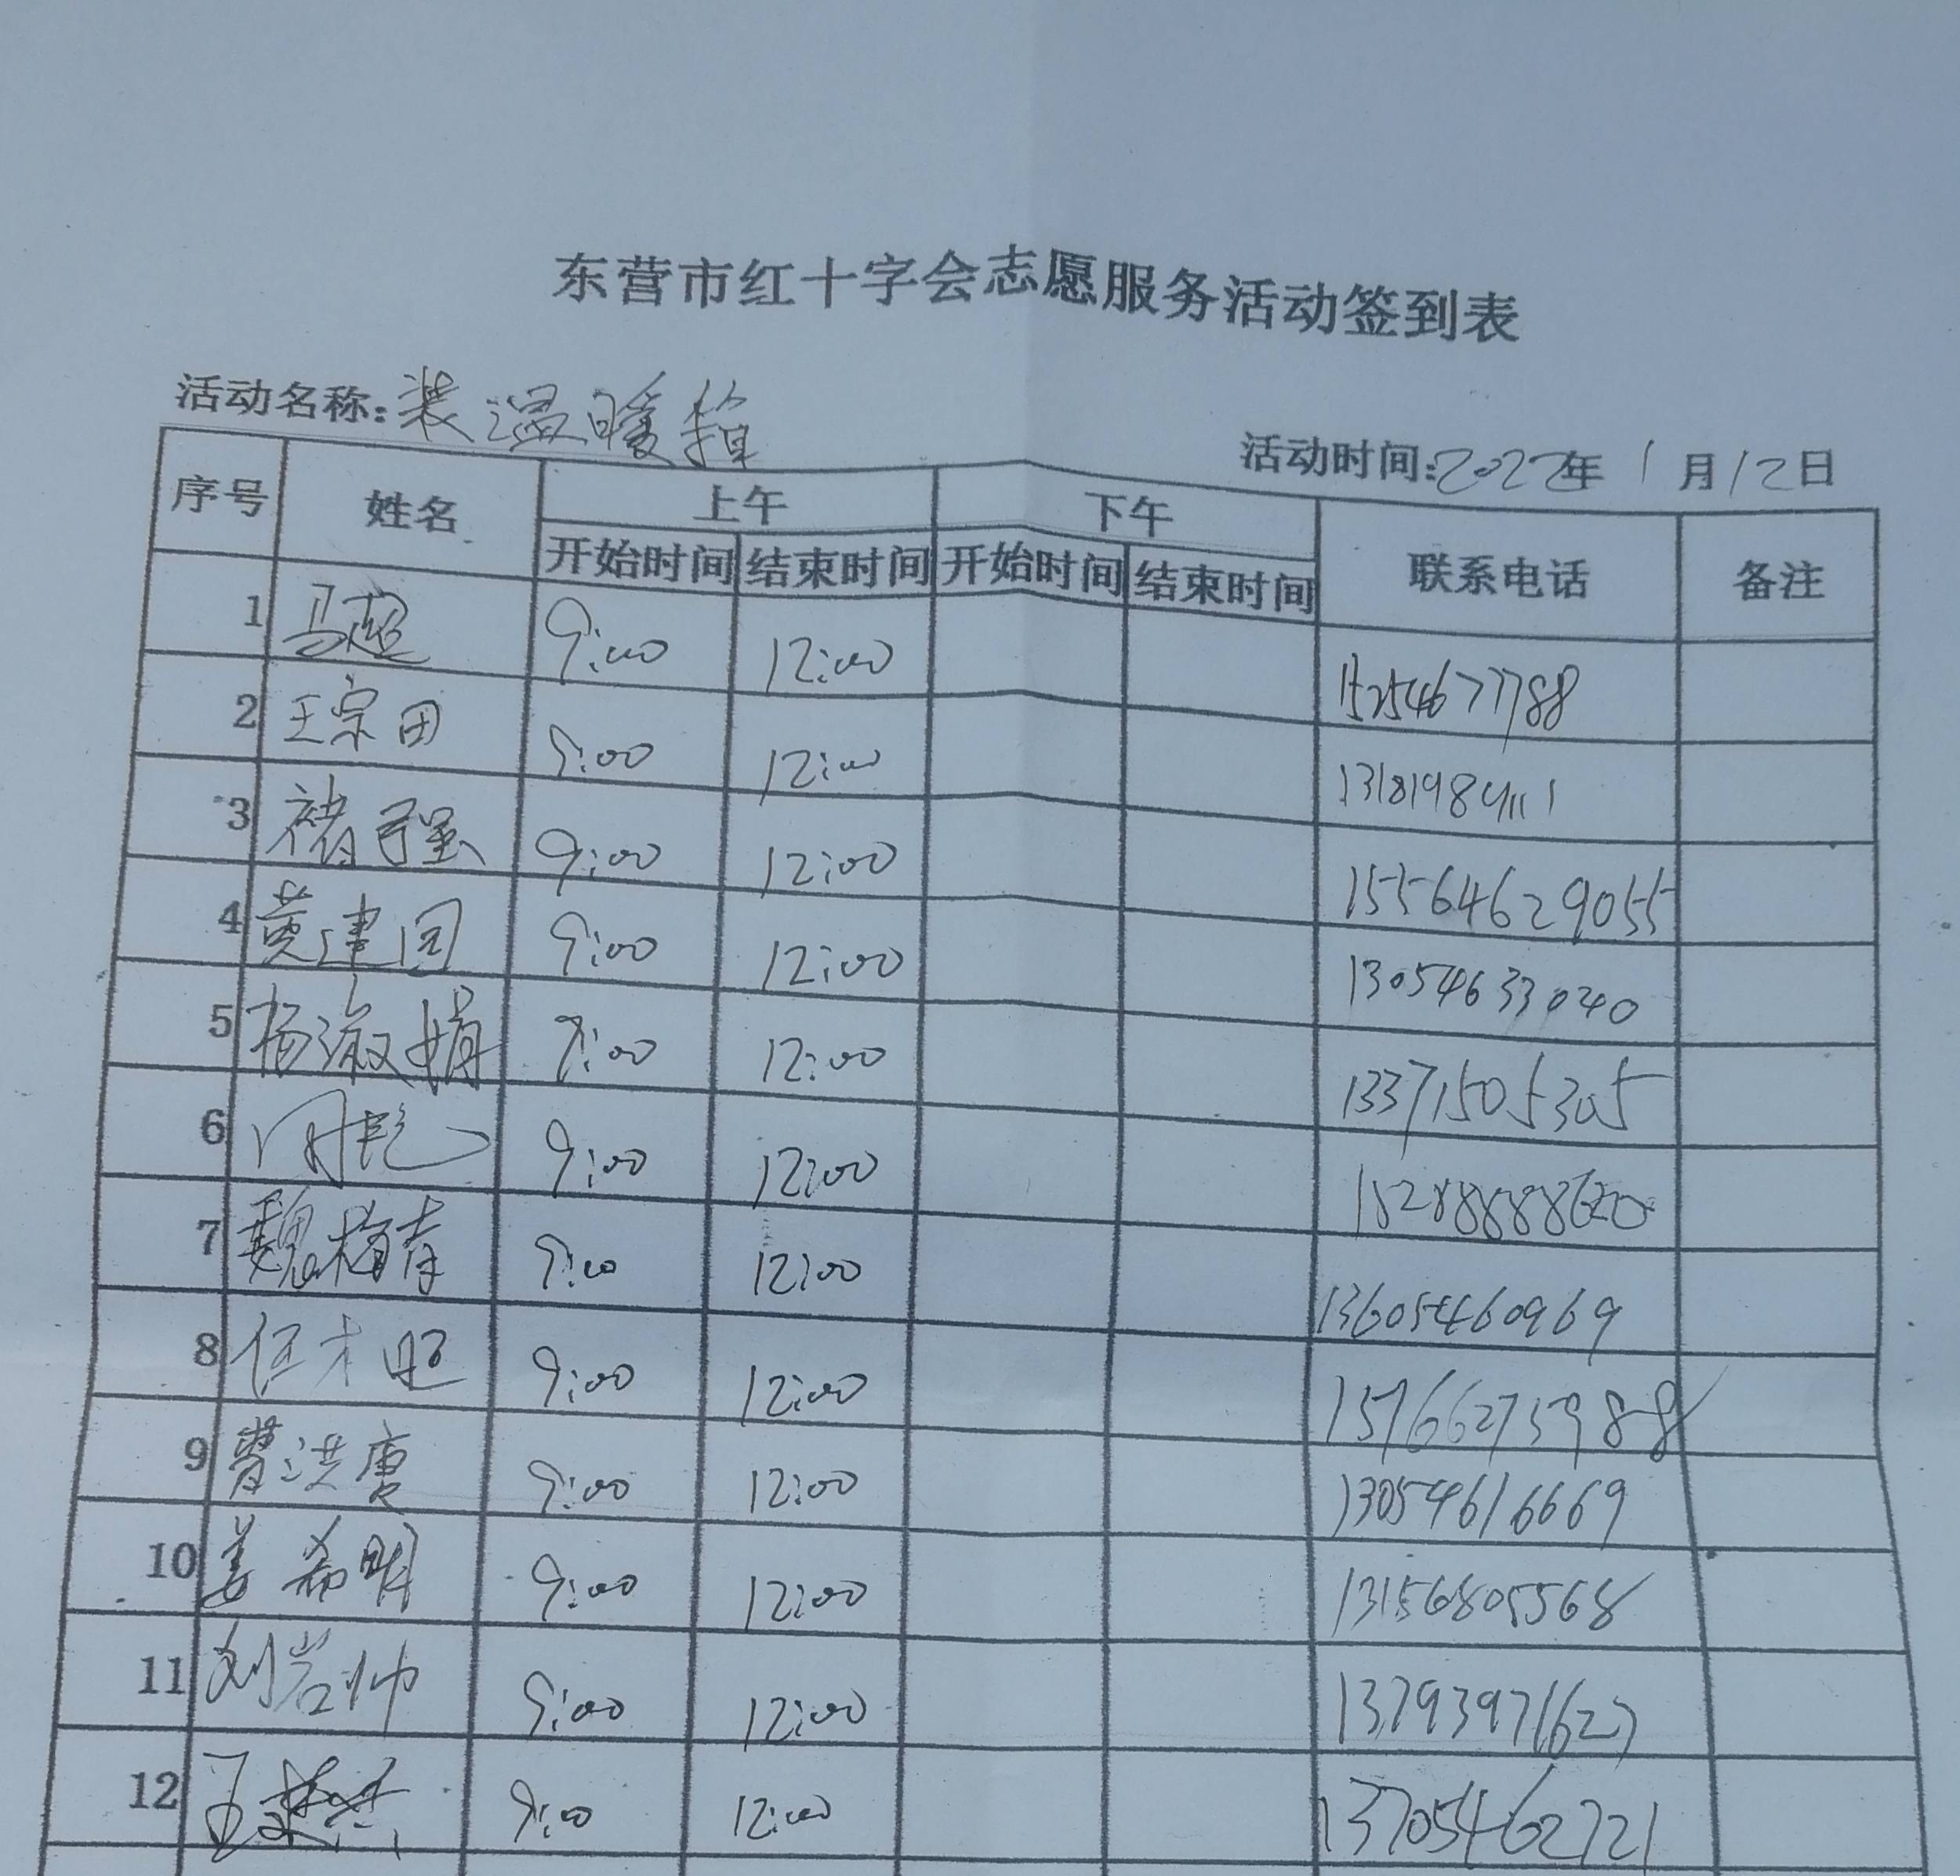 东营市红十字会志愿服务活动签到表
活动名称:装温暖箱
活动时间:2022年1月12日
序号 姓名 上午 下午 联系电话 备注
开始时间 结束时间 开始时间 结束时间
1 马超 9:00 12:00 15254677788
2 王宗田 9:00 12:00 13181984111
3 褚强 9:00 12:00 15564629055
4 黄建国 9:00 12:00 13054633040
5 杨淑娟 9:00 12:00 13371505305
6 9:00 12:00
7 魏梅青 9:00 12:00 13605460969
8 任 9:00 12:00 15766275988
9 洪 9:00 12:00 13054616669
10 姜希明 9:00 12:00 13156805568
11 刘岩帅 9:00 12:00 13793971627
12 王 9:00 12:00 13705462721